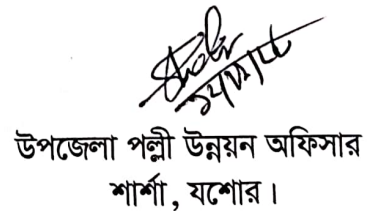 উপজেলা পল্লী উন্নয়ন অফিসার
শার্শা, যশোর।